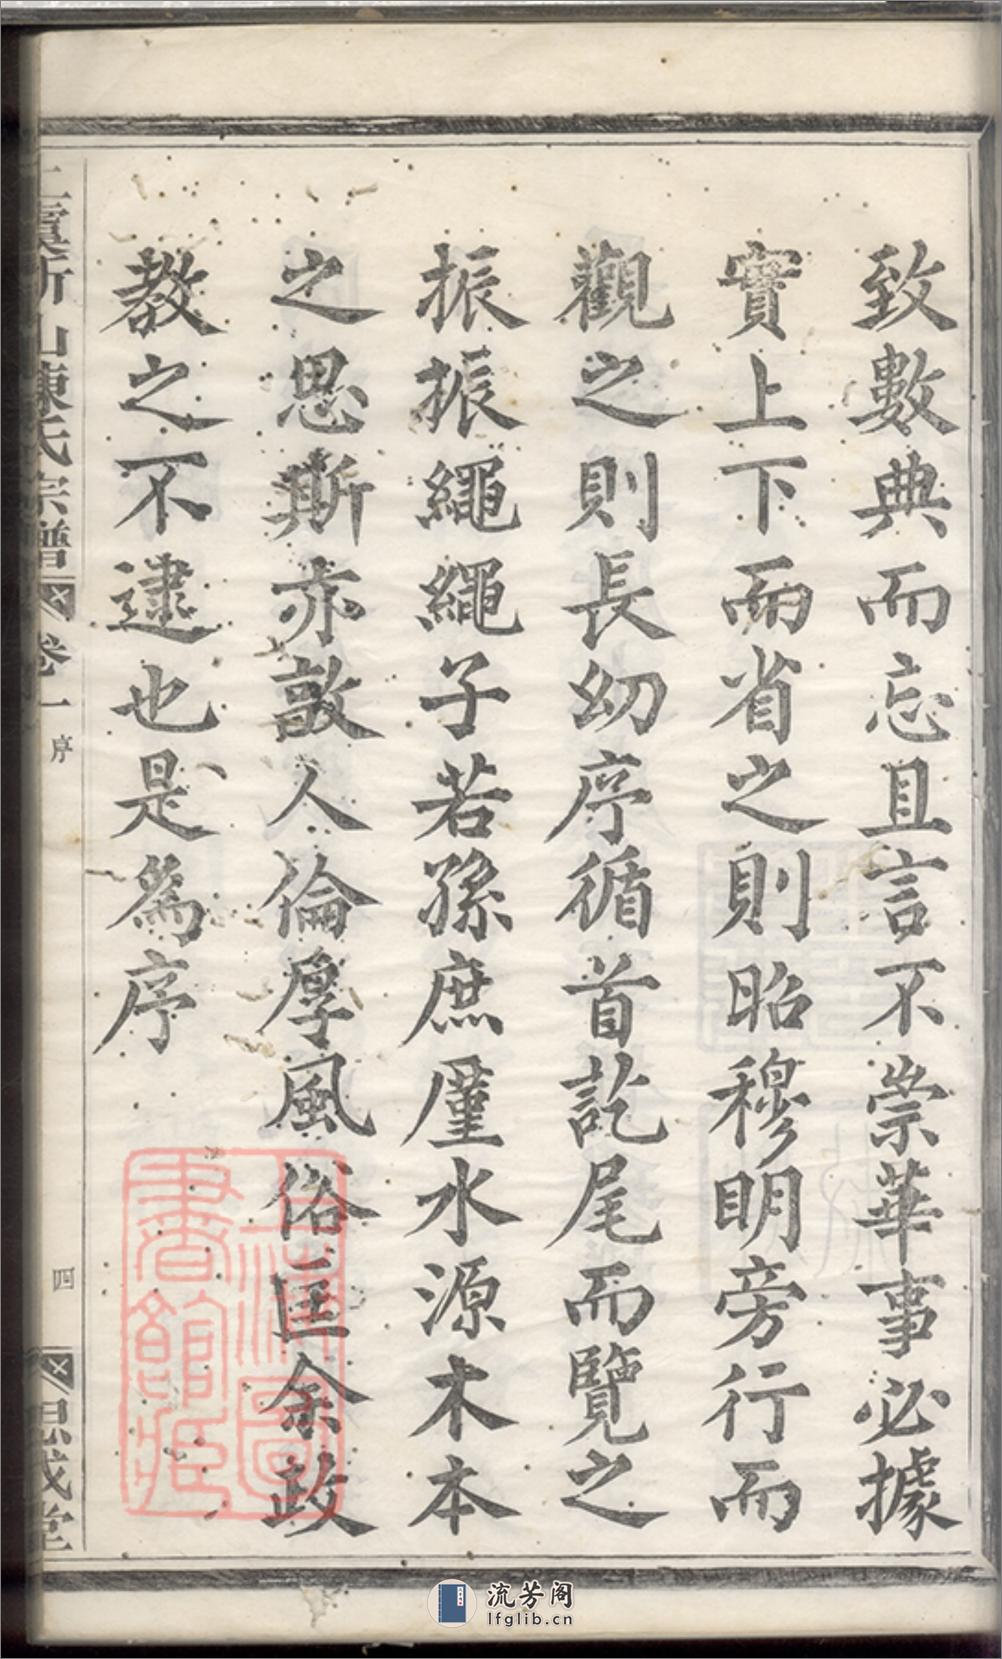 致數典而忘且言不崇華事必據
實上下而省之則昭穆明旁行而
觀之則長幼序循首訖尾而覽之
振振繩繩子若孫庶厪水源木本
之思斯亦敦人倫厚風俗匡余政
教之不逮也是為序
上虞所山陳氏宗譜
卷一
序
四
思成堂
上海圖書館藏
流芳阁
lfglib.cn